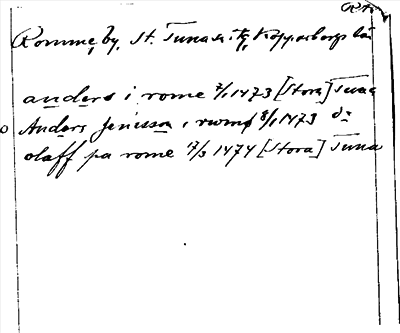 Romme, by, St. Tuna sn, Kopparbergs län
anders i rome 7/1 1473 [Stora] Tuna
Anders Jenissa i rwm 8/1 1473 d:
olaff pa rome 17/3 1474 [Stora] Tuna